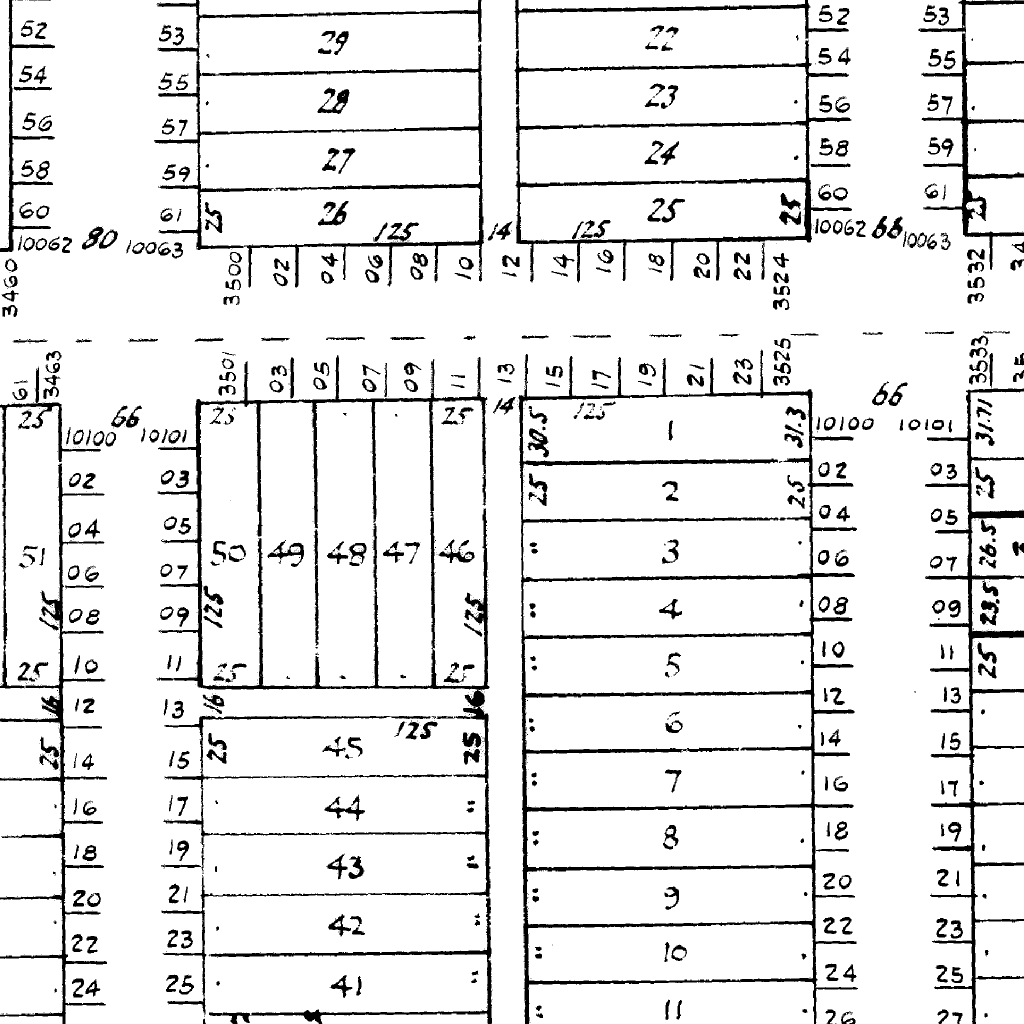 52 53 29 22 52 53
54 55 28 23 54 55
56 57 27 24 56 57
58 59 58 59
60 61 25 26 125 14 125 25 25 60 61 25
10062 80 10063 10062 66 10063
3460 3500 02 04 06 08 10 12 14 16 18 20 22 3524 3532
61 3463 3501 03 05 07 09 11 13 15 17 19 21 23 3525 3533
25 66 25 25 14 30.5 125 1 31.3 66 31.71
10100 10101 10100 10101
02 03 25 2 25 02 03 25
04 05 04 05
51 50 49 48 47 46 3 26.5
06 07 06 07
125 08 09 125 125 4 08 09 23.5
25 10 11 25 25 5 10 11 25
16 12 13 16 16 12 13
25 14 15 25 45 125 25 6 14 15
16 17 44 7 16 17
18 19 43 8 18 19
20 21 9 20 21
22 23 42 22 23
24 25 41 10 24 25
11 26 27